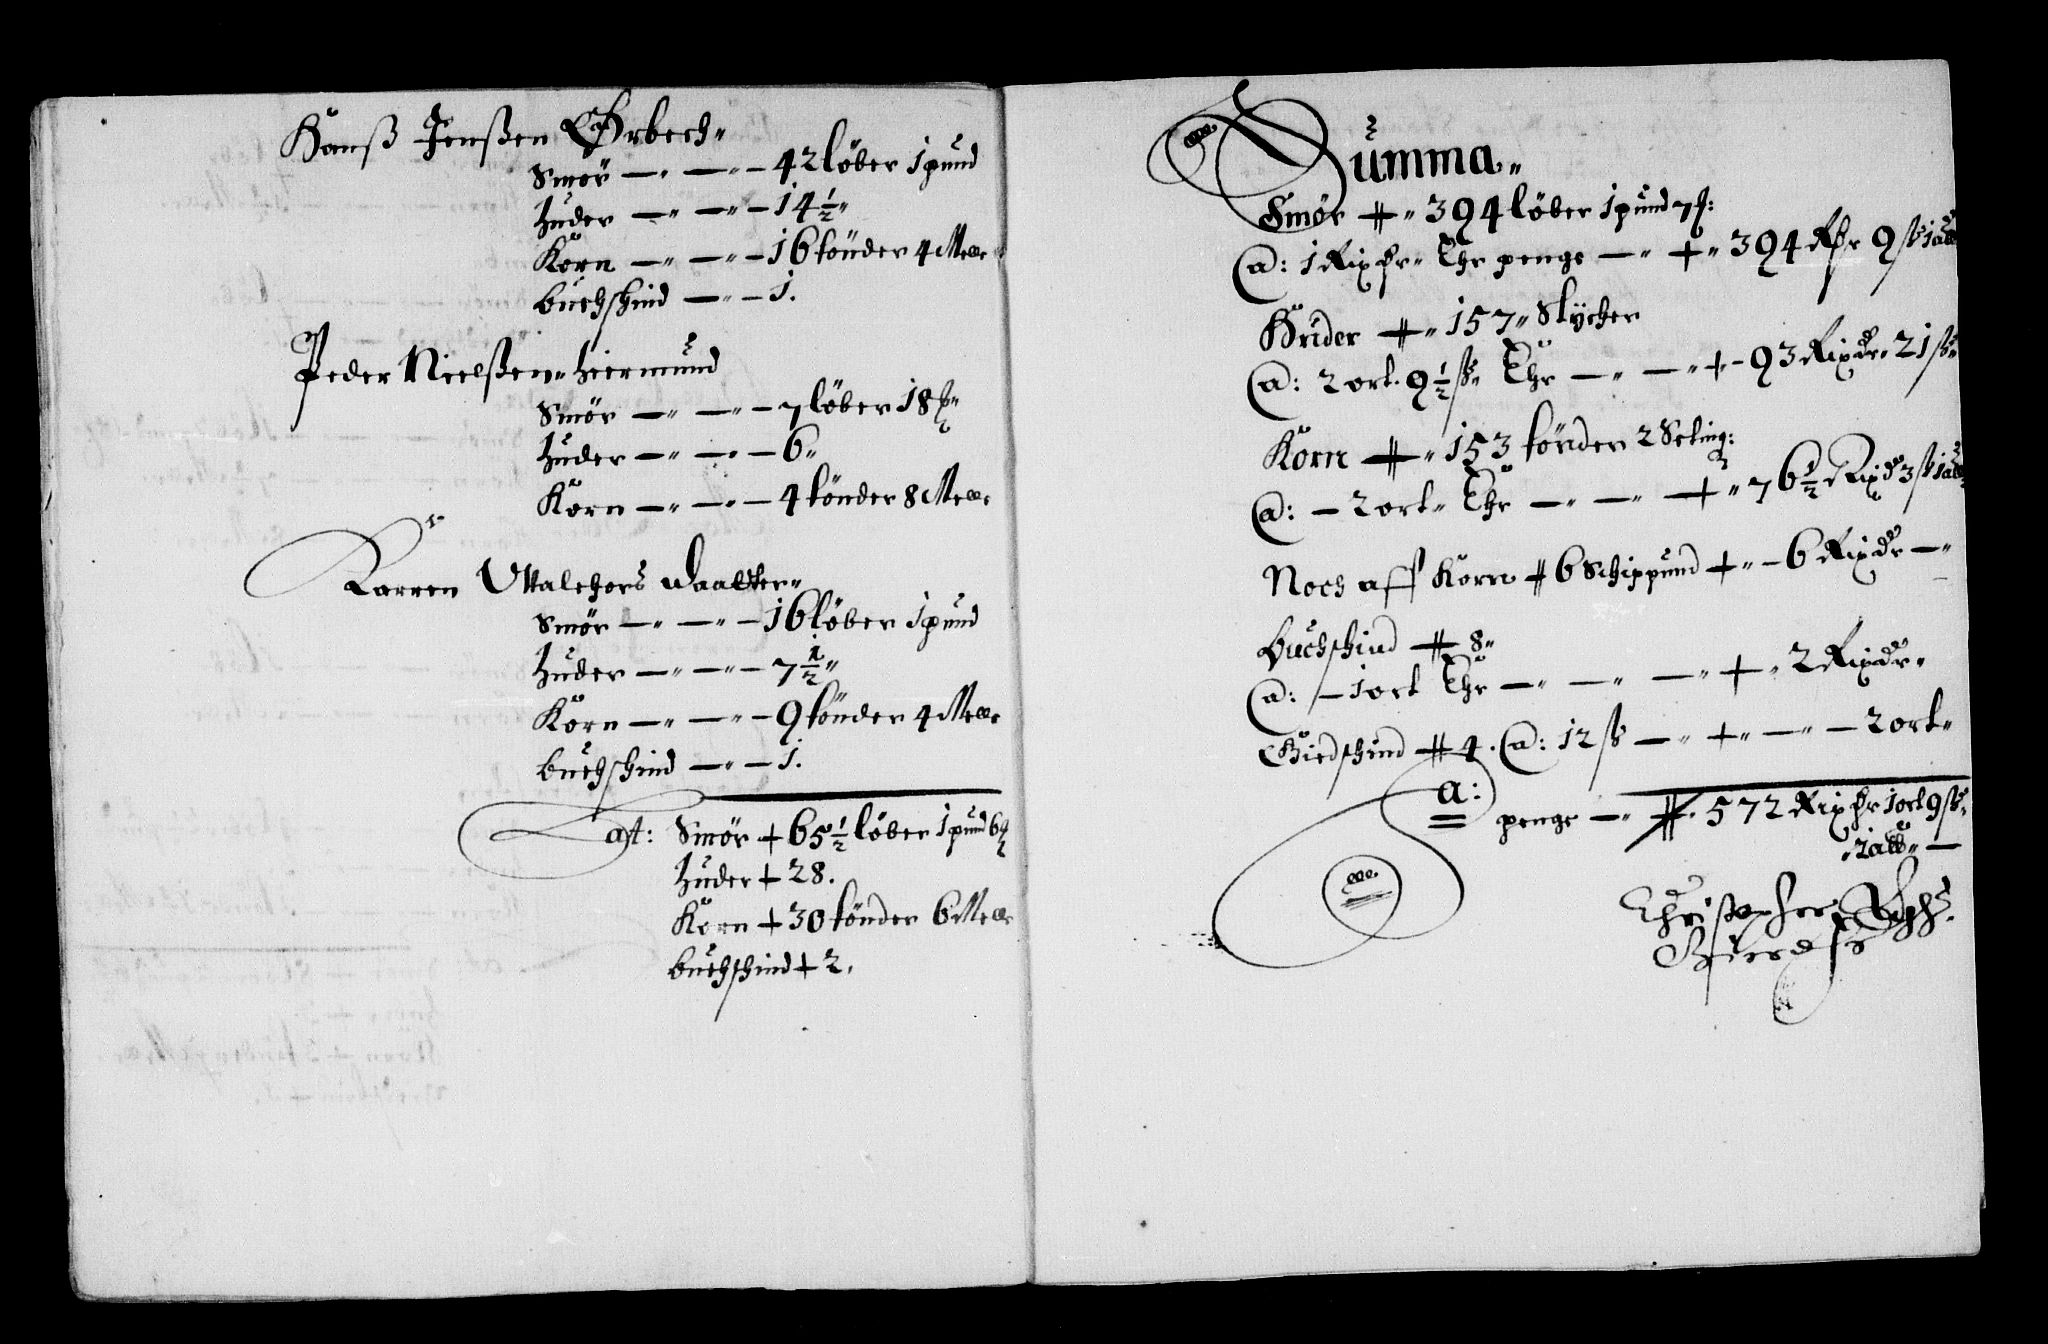 Hanß Jenßen Ørbech
Smör — — 42 löber 1 pund
Huder — — 14 1/2
Korn — — 16 tönder 4 Melle
buchschind — 1.
Peder Nielßen Hiermund
Smör — — 7 löber 18 ℔
Huder — — 6
Korn — — 4 tönder 8 Melle
Karren Valchors daatter
Smör — — 16 löber 1 pund
Huder — — 7 1/2
Korn — — 9 tönder 4 Melle
buchschind — 1.
aft: Smör + 65 1/2 löber 1 pund 6 ℔
Huder + 28.
Korn + 30 tönder 6 Melle
buchschind + 2.
Summa
Smör # 394 löber 1 pund 7 ℔:
@: 1 Rixdr Ehr penge — + 394 Rdr 9 ß 1 alb
Huder # 157 Stycher
@: 2 ort 9 1/2 ß Ehr — — + 93 Rixdr 21 ß
Korn # 153 tönder 2 Setting:
@: — 2 ort Ehr — — + 76 1/2 Rixdr 3 ß 1 alb
Noch aff Korn # 6 Schippund + — 6 Rixdr —
buchschind # 8
@: — 1 ort Ehr — — — + 2 Rixdr
Giedschind # 4. @: 12 ß — + — 2 ort
a:
penge — # 572 Rixdr 1 ort 9 ß
2 alb —
Christopher